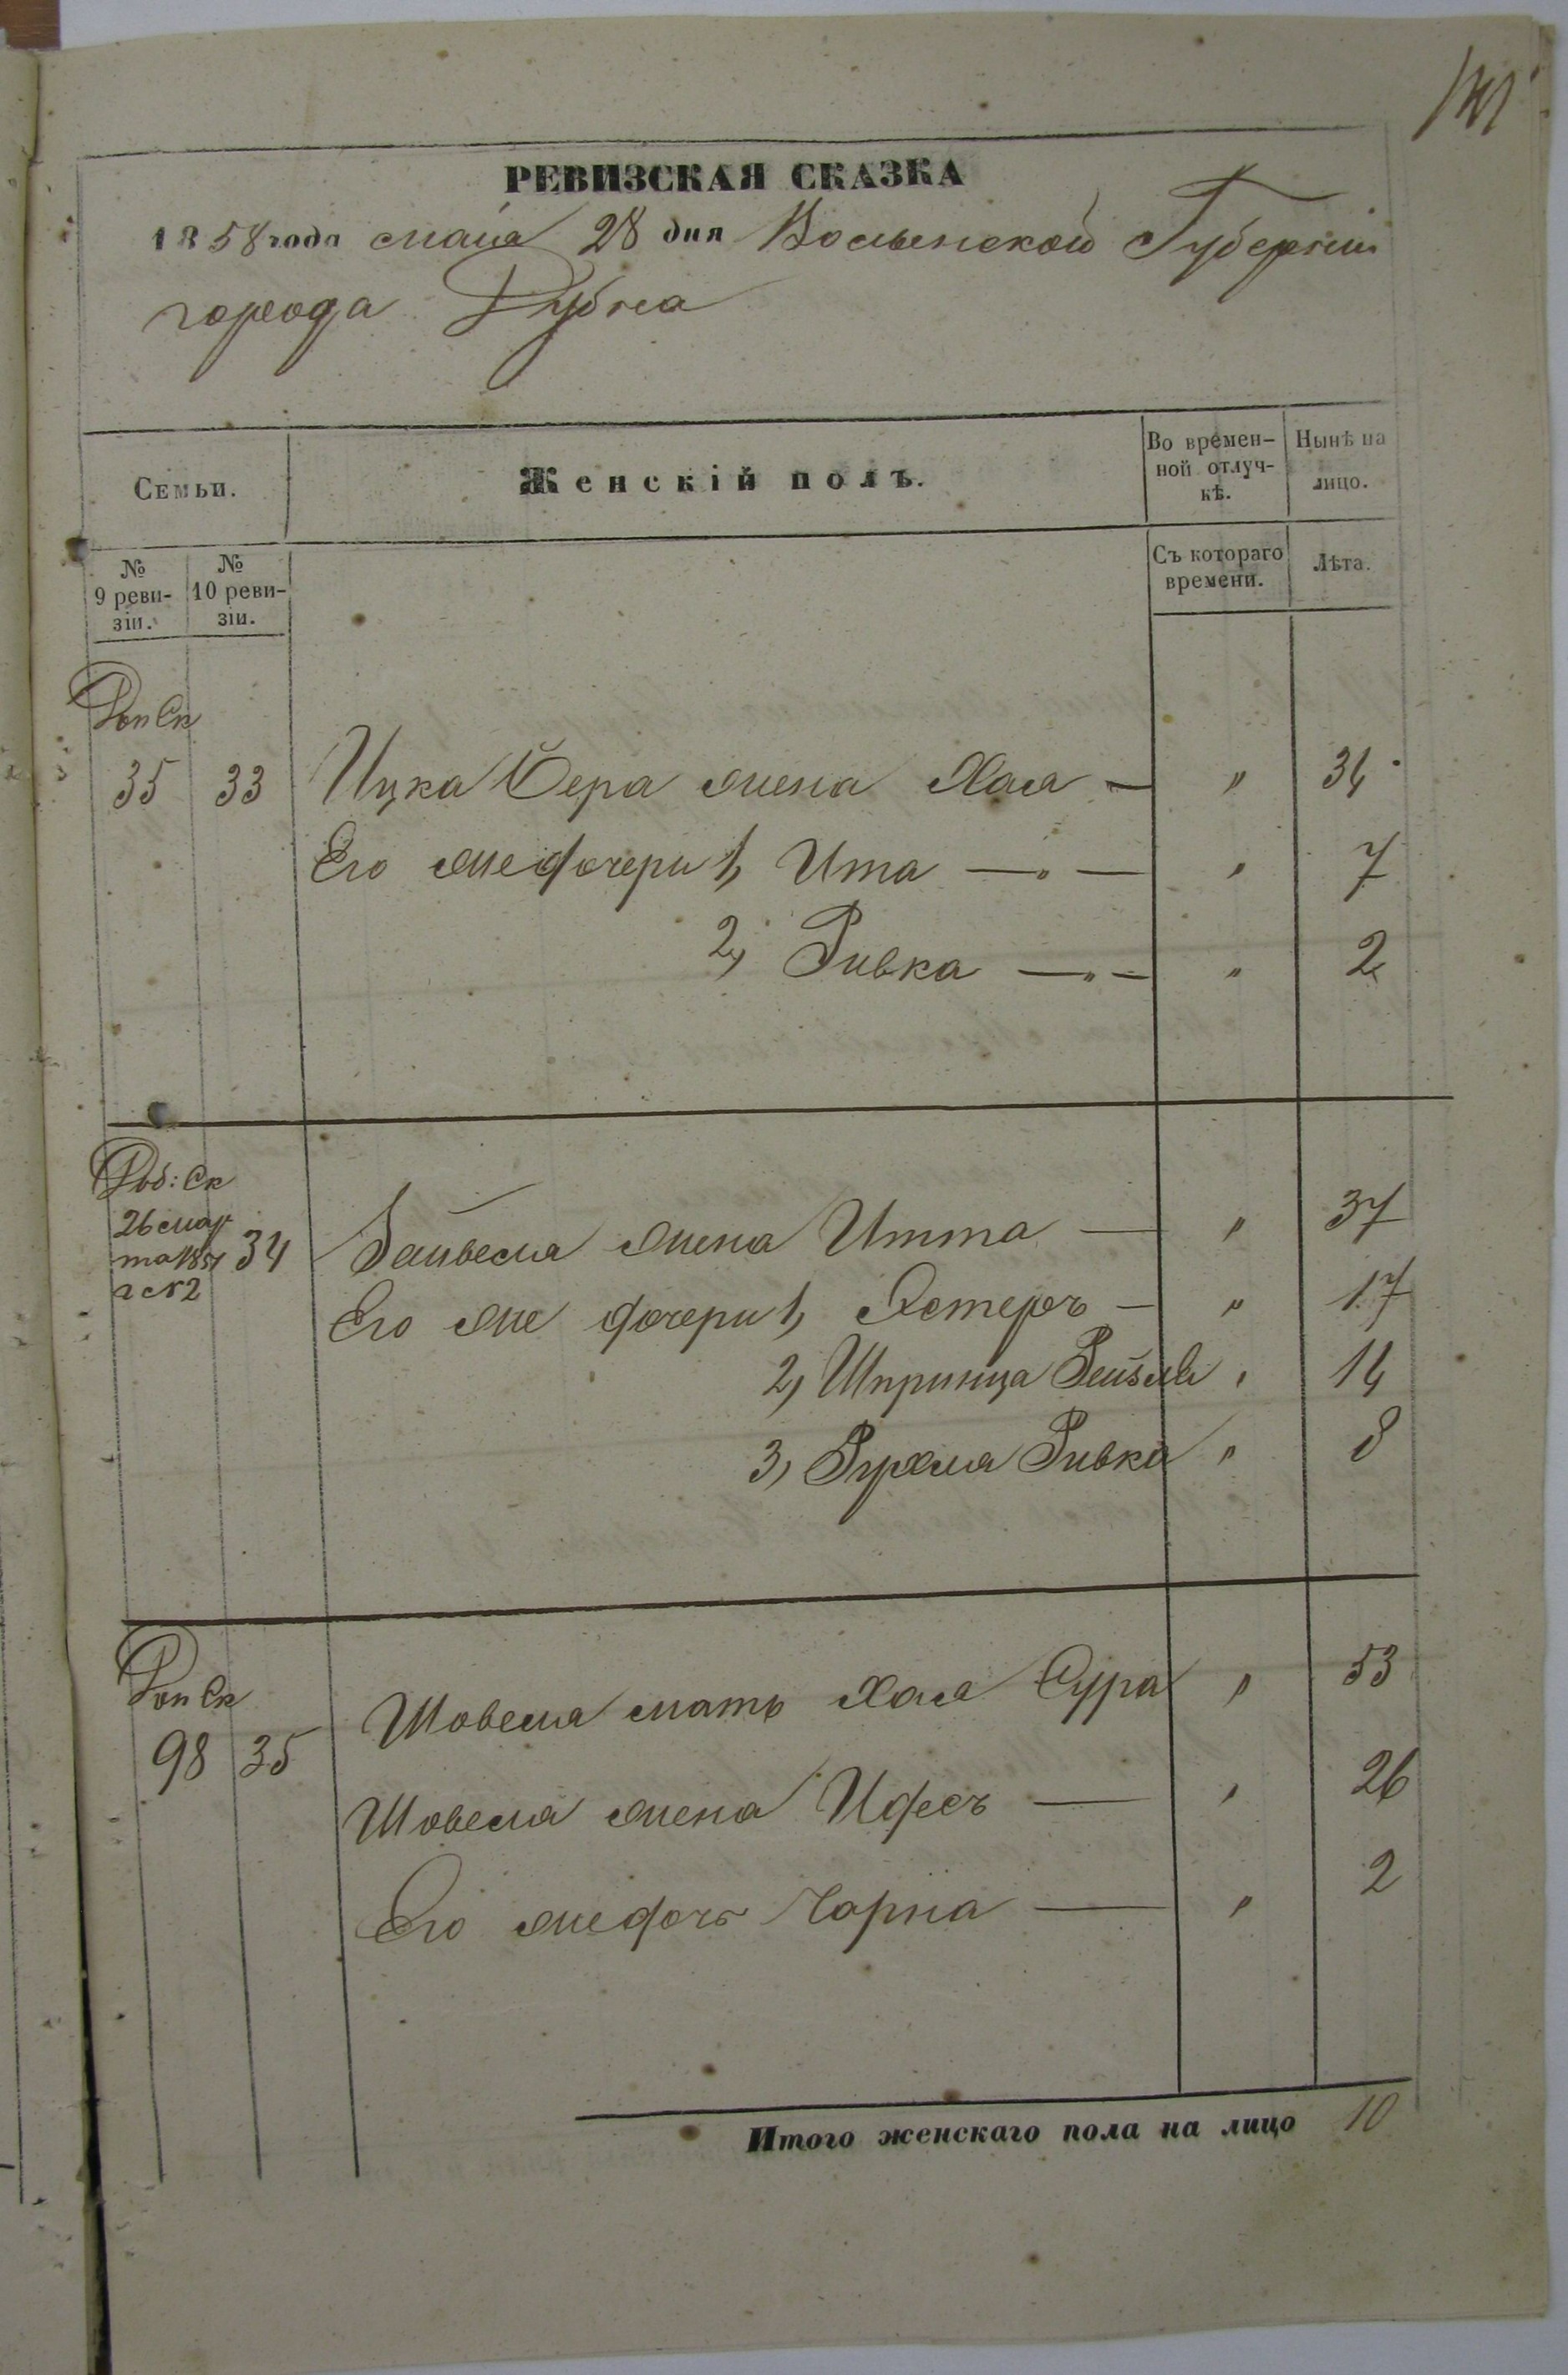 141
РЕВИЗСКАЯ СКАЗКА
1858 года мая 28 дня Волынской Губерніи
города Дубна
Семьи.
Женскій полъ.
Во времен-
ной отлуч-
кѣ.
Ныиѣ на
лицо.
№
9 реви-
зіи.
№
10 реви-
зіи.
Съ котораго
времени.
Лѣта.
Доп Ск
35 33 Ицка Бера жена Хая — " 34
Его же дочери 1, Ита — " — " 7
2, Ривка — " — " 2
Доб: Ск
26 мар
та 1851
г с№2
34 Зейвеля жена Итта — " 37
Его же дочери 1, Эстеръ — " 17
2, Шпринца Рейзля " 14
3, Рухля Ривка " 8
Доп Ск
98 35 Шовеля мать Хая Сура " 53
Шовеля жена Ифесъ — " 26
Его же дочь Чарна — " 2
Итого женскаго пола на лицо 10